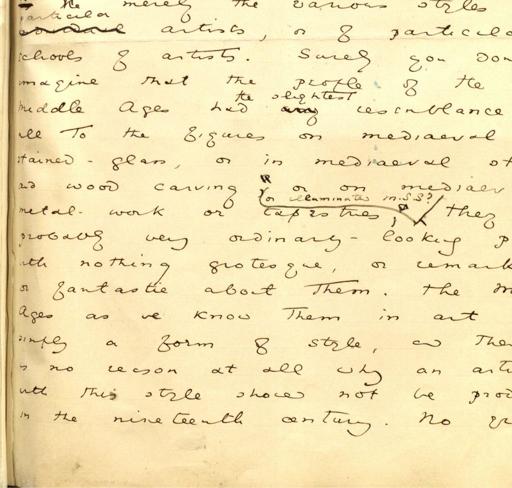 the merely the various styles
particular
artists, or of particula
schools of artists. Surely you don
imagine that the people of the
the slightest
middle Ages had any resemblance
all To the figures on mediaeval
stained-glass, or in mediaeval st
and wood carving or on mediaev
(or illuminated M.S.S?
metal-work or tapestries; they
probably very ordinary-looking p
with nothing grotesque, or remark
or fantastic about Them. The M
Ages as we know Them in art
simply a form of style, and Ther
is no reason at all why an arti
with this style should not be prod
in the nineteenth century. No gr